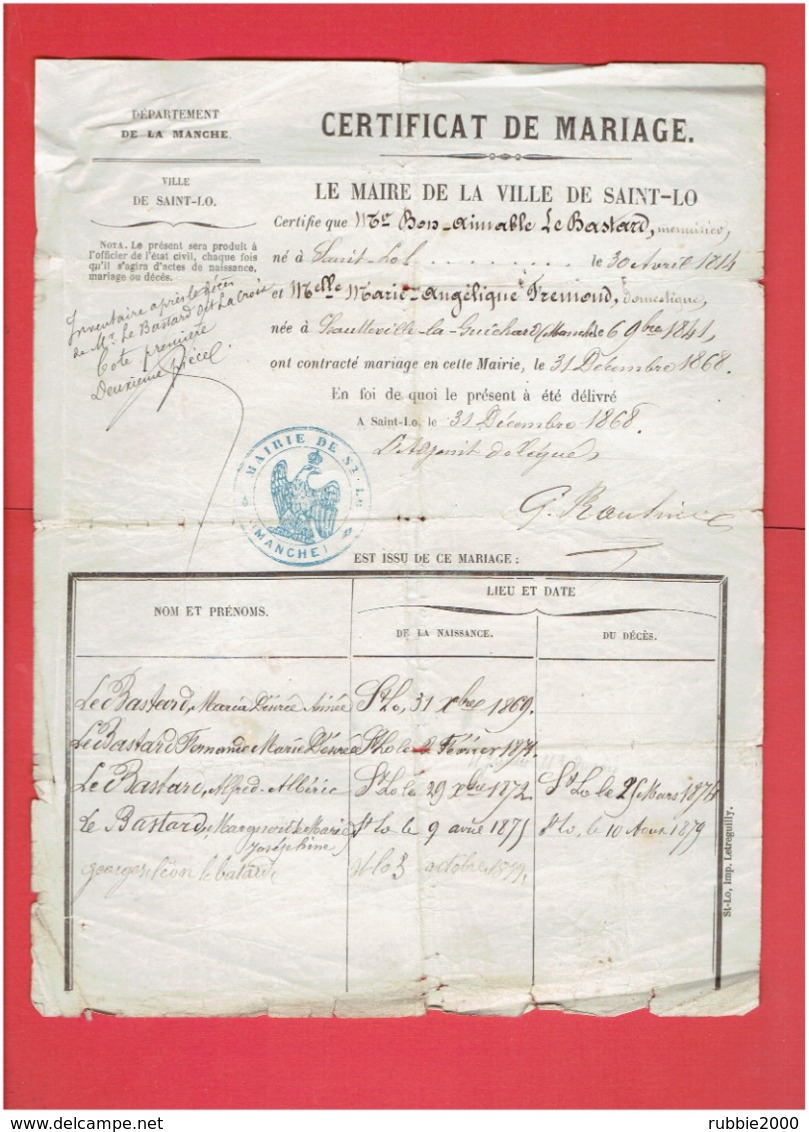 DÉPARTEMENT
DE LA MANCHE.
VILLE
DE SAINT-LO.
NOTA. Le présent sera produit à
l'officier de l'état civil, chaque fois
qu'il s'agira d'actes de naissance,
mariage ou décès.
Inventaire après le décès
de Mr. Le Bastard dit La Croix
Cote première
Deuxième pièce.
CERTIFICAT DE MARIAGE.
LE MAIRE DE LA VILLE DE SAINT-LO
Certifie que Mr Bon-Aimable Le Bastard, menuisier,
né à Saint-Lo, le 30 Avril 1814
et Melle Marie-Angélique Fremond, domestique,
née à Hautteville-la-Guichard (Manche) le 6 9bre 1841,
ont contracté mariage en cette Mairie, le 31 Décembre 1868.
En foi de quoi le présent à été délivré
A Saint-Lo, le 31 Décembre 1868.
L'Adjoint délégué,
MAIRIE DE ST. LO
(MANCHE)
EST ISSU DE CE MARIAGE :
NOM ET PRÉNOMS.
LIEU ET DATE
DE LA NAISSANCE.
DU DÉCÈS.
Le Bastard, Maria Désirée Aimée St Lo, 31 xbre 1869.
Le Bastard Fernande Marie Désirée St Lo le 2 Février 1871.
Le Bastard, Alfred-Albéric St Lo le 29 xbre 1872. St Lo le 25 Mars 1874
Le Bastard, Marguerite Marie St Lo le 9 avril 1875 St Lo, le 10 Aout 1879
Joséphine
georges léon le batard St lo 3 octobre 1879.
St-Lo, imp. Letreguilly.
rubbie2000